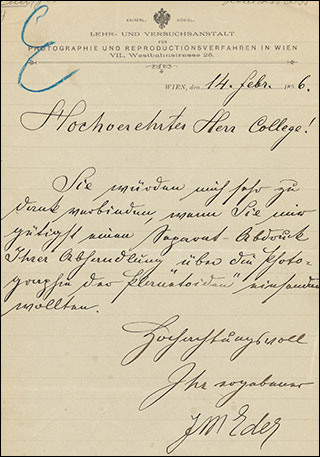 KAISERL. KÖNIGL.
LEHR- UND VERSUCHSANSTALT
FÜR
PHOTOGRAPHIE UND REPRODUCTIONSVERFAHREN IN WIEN
VII., Westbahnstrasse 25.
WIEN, den 14. Febr. 1896.
Hochverehrter Herr College!
Sie würden mich sehr zu
Dank verbinden, wenn Sie mir
gütigst einen Separat-Abdruck
Ihrer Abhandlung über die Photo-
graphie der „Perseïden“ einsenden
wollten.
Hochachtungsvoll
Ihr ergebener
J M Eder